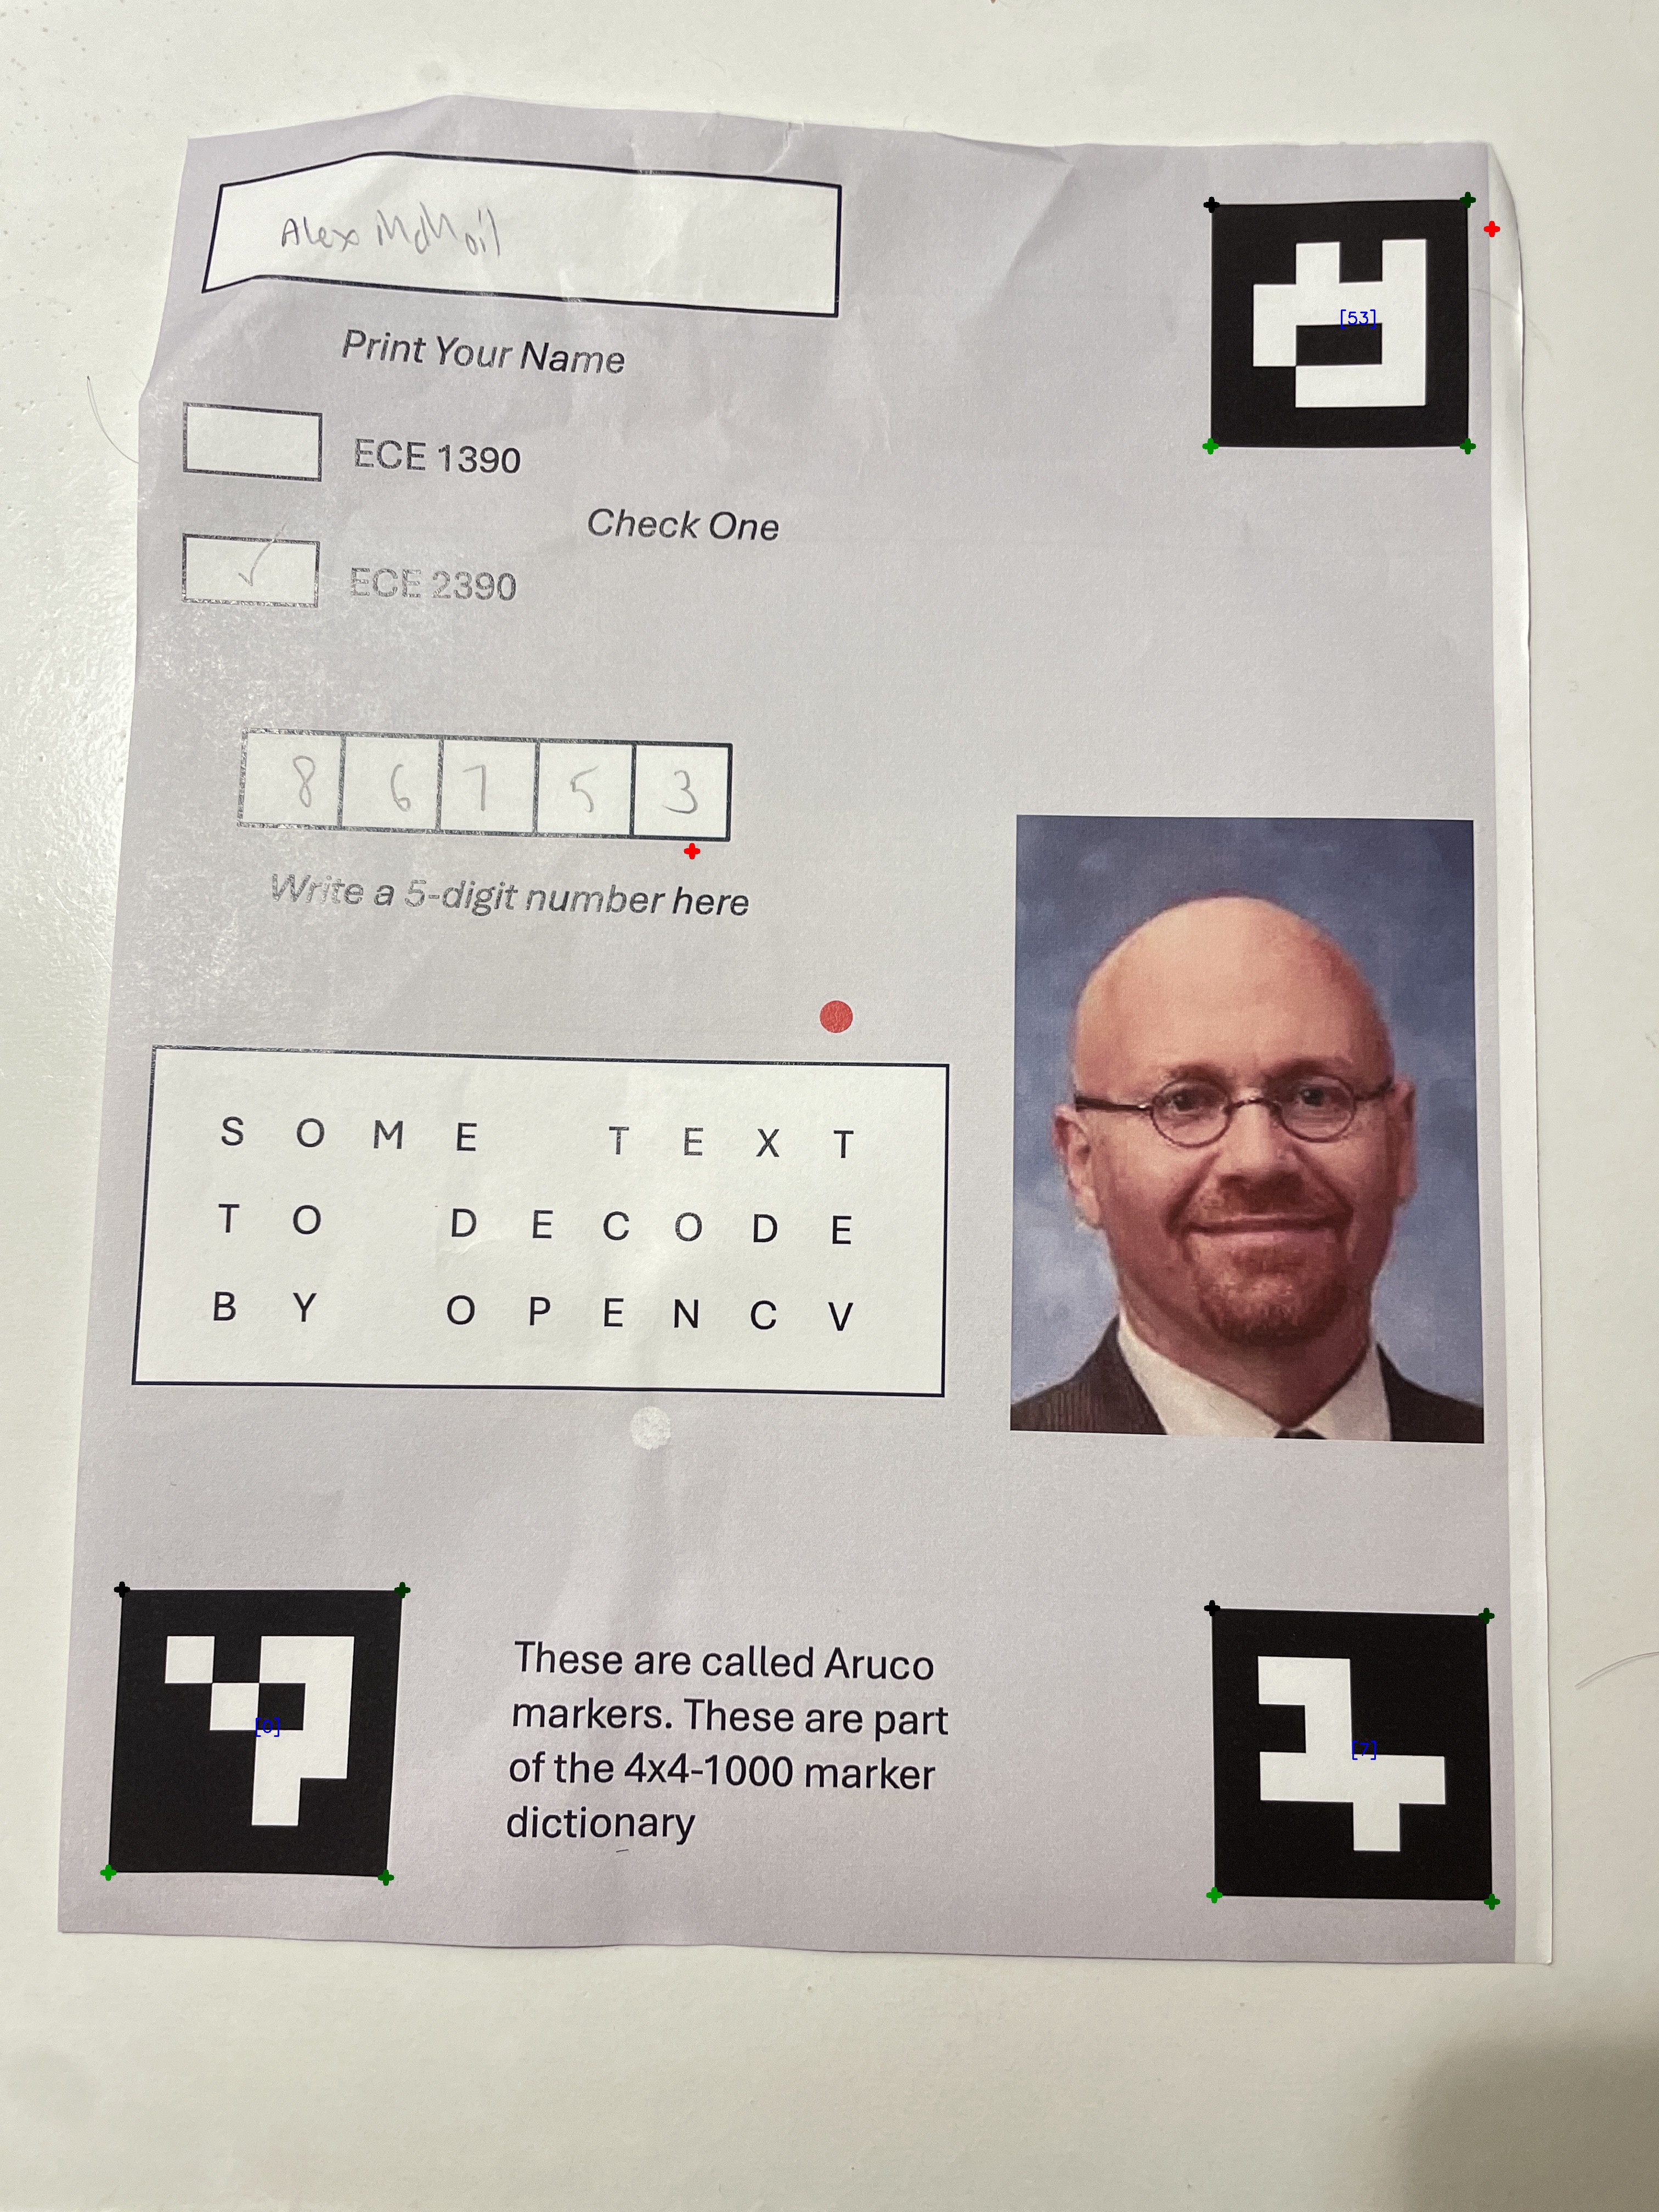 Alex
Print Your Name
ECE 1390
Check One
✓ ECE 2390
8 6 7 5 3
Write a 5-digit number here
S O M E T E X T
T O D E C O D E
B Y O P E N C V
These are called Aruco
markers. These are part
of the 4x4-1000 marker
dictionary
[53]
[0]
[7]